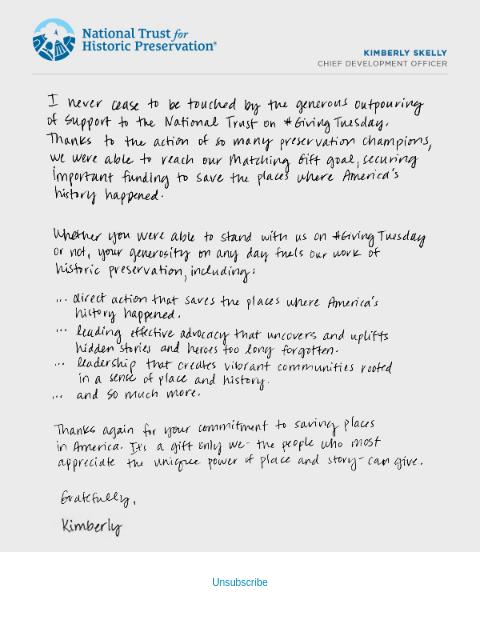 National Trust for
Historic Preservation®
KIMBERLY SKELLY
CHIEF DEVELOPMENT OFFICER
I never cease to be touched by the generous outpouring
of support to the National Trust on #GivingTuesday.
Thanks to the action of so many preservation champions,
we were able to reach our Matching Gift goal, securing
important funding to save the places where America's
history happened.
Whether you were able to stand with us on #GivingTuesday
or not, your generosity on any day fuels our work of
historic preservation, including:
... direct action that saves the places where America's
history happened.
... leading effective advocacy that uncovers and uplifts
hidden stories and heroes too long forgotten.
... leadership that creates vibrant communities rooted
in a sense of place and history.
... and so much more.
Thanks again for your commitment to saving places
in America. It's a gift only we - the people who most
appreciate the unique power of place and story - can give.
Gratefully,
Kimberly
Unsubscribe